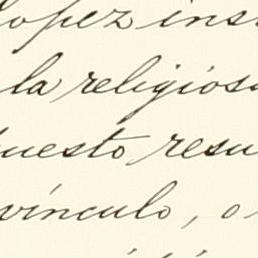 lopez ins
la religiosa
uesto resu
vínculo, o